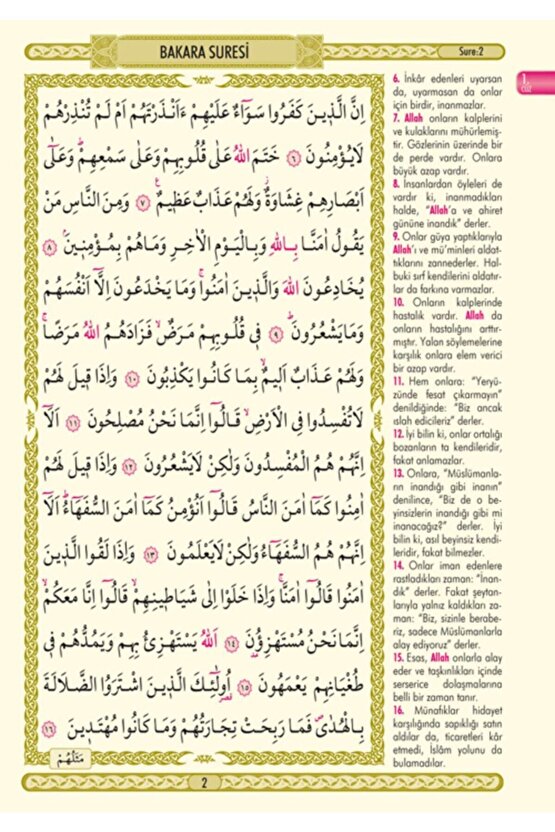 BAKARA SURESİ
Sure:2
1.
cüz
اِنَّ الَّذ۪ينَ كَفَرُوا سَوَٓاءٌ عَلَيْهِمْ ءَاَنْذَرْتَهُمْ اَمْ لَمْ تُنْذِرْهُمْ
لَا يُؤْمِنُونَ ﴿٦﴾ خَتَمَ اللّٰهُ عَلٰى قُلُوبِهِمْ وَعَلٰى سَمْعِهِمْۜ وَعَلٰٓى
اَبْصَارِهِمْ غِشَاوَةٌۘ وَلَهُمْ عَذَابٌ عَظ۪يمٌ۟ ﴿٧﴾ وَمِنَ النَّاسِ مَنْ
يَقُولُ اٰمَنَّا بِاللّٰهِ وَبِالْيَوْمِ الْاٰخِرِ وَمَا هُمْ بِمُؤْمِن۪ينَۢ ﴿٨﴾
يُخَادِعُونَ اللّٰهَ وَالَّذ۪ينَ اٰمَنُواۚ وَمَا يَخْدَعُونَ اِلَّٓا اَنْفُسَهُمْ
وَمَا يَشْعُرُونَۜ ﴿٩﴾ ف۪ي قُلُوبِهِمْ مَرَضٌۙ فَزَادَهُمُ اللّٰهُ مَرَضًاۚ
وَلَهُمْ عَذَابٌ اَل۪يمٌۙ بِمَا كَانُوا يَكْذِبُونَ ﴿١٠﴾ وَاِذَا ق۪يلَ لَهُمْ
لَا تُفْسِدُوا فِي الْاَرْضِۙ قَالُٓوا اِنَّمَا نَحْنُ مُصْلِحُونَ ﴿١١﴾ اَلَٓا
اِنَّهُمْ هُمُ الْمُفْسِدُونَ وَلٰكِنْ لَا يَشْعُرُونَ ﴿١٢﴾ وَاِذَا ق۪يلَ لَهُمْ
اٰمِنُوا كَمَٓا اٰمَنَ النَّاسُ قَالُٓوا اَنُؤْمِنُ كَمَٓا اٰمَنَ السُّفَهَٓاءُۜ اَلَٓا
اِنَّهُمْ هُمُ السُّفَهَٓاءُ وَلٰكِنْ لَا يَعْلَمُونَ ﴿١٣﴾ وَاِذَا لَقُوا الَّذ۪ينَ
اٰمَنُوا قَالُٓوا اٰمَنَّاۚ وَاِذَا خَلَوْا اِلٰى شَيَاط۪ينِهِمْۙ قَالُٓوا اِنَّا مَعَكُمْۙ
اِنَّمَا نَحْنُ مُسْتَهْزِؤُ۫نَ ﴿١٤﴾ اَللّٰهُ يَسْتَهْزِئُ بِهِمْ وَيَمُدُّهُمْ ف۪ي
طُغْيَانِهِمْ يَعْمَهُونَ ﴿١٥﴾ اُو۬لٰٓئِكَ الَّذ۪ينَ اشْتَرَوُا الضَّلَالَةَ
بِالْهُدٰىۖ فَمَا رَبِحَتْ تِجَارَتُهُمْ وَمَا كَانُوا مُهْتَد۪ينَ ﴿١٦﴾
مَثَلُهُمْ
2
6. İnkâr edenleri uyarsan
da, uyarmasan da onlar
için birdir, inanmazlar.
7. Allah onların kalplerini
ve kulaklarını mühürlemiş-
tir. Gözlerinin üzerinde bir
de perde vardır. Onlara
büyük azap vardır.
8. İnsanlardan öyleleri de
vardır ki, inanmadıkları
halde, "Allah'a ve ahiret
gününe inandık" derler.
9. Onlar güya yaptıklarıyla
Allah'ı ve mü'minleri aldat-
tıklarını zannederler. Hal-
buki sırf kendilerini aldatır-
lar da farkına varmazlar.
10. Onların kalplerinde
hastalık vardır. Allah da
onların hastalığını arttır-
mıştır. Yalan söylemelerine
karşılık onlara elem verici
bir azap vardır.
11. Hem onlara: "Yeryü-
zünde fesat çıkarmayın"
denildiğinde: "Biz ancak
ıslah edicileriz" derler.
12. İyi bilin ki, onlar ortalığı
bozanların ta kendileridir,
fakat anlamazlar.
13. Onlara, "Müslümanla-
rın inandığı gibi inanın"
denilince, "Biz de o be-
yinsizlerin inandığı gibi mi
inanacağız?" derler. İyi
bilin ki, asıl beyinsiz kendi-
leridir, fakat bilmezler.
14. Onlar iman edenlere
rastladıkları zaman: "İnan-
dık" derler. Fakat şeytan-
larıyla yalnız kaldıkları za-
man: "Biz, sizinle berabe-
riz, sadece Müslümanlarla
alay ediyoruz" derler.
15. Esas, Allah onlarla alay
eder ve taşkınlıkları içinde
serserice dolaşmalarına
belli bir zaman tanır.
16. Münafıklar hidayet
karşılığında sapıklığı satın
aldılar da, ticaretleri kâr
etmedi, İslâm yolunu da
bulamadılar.